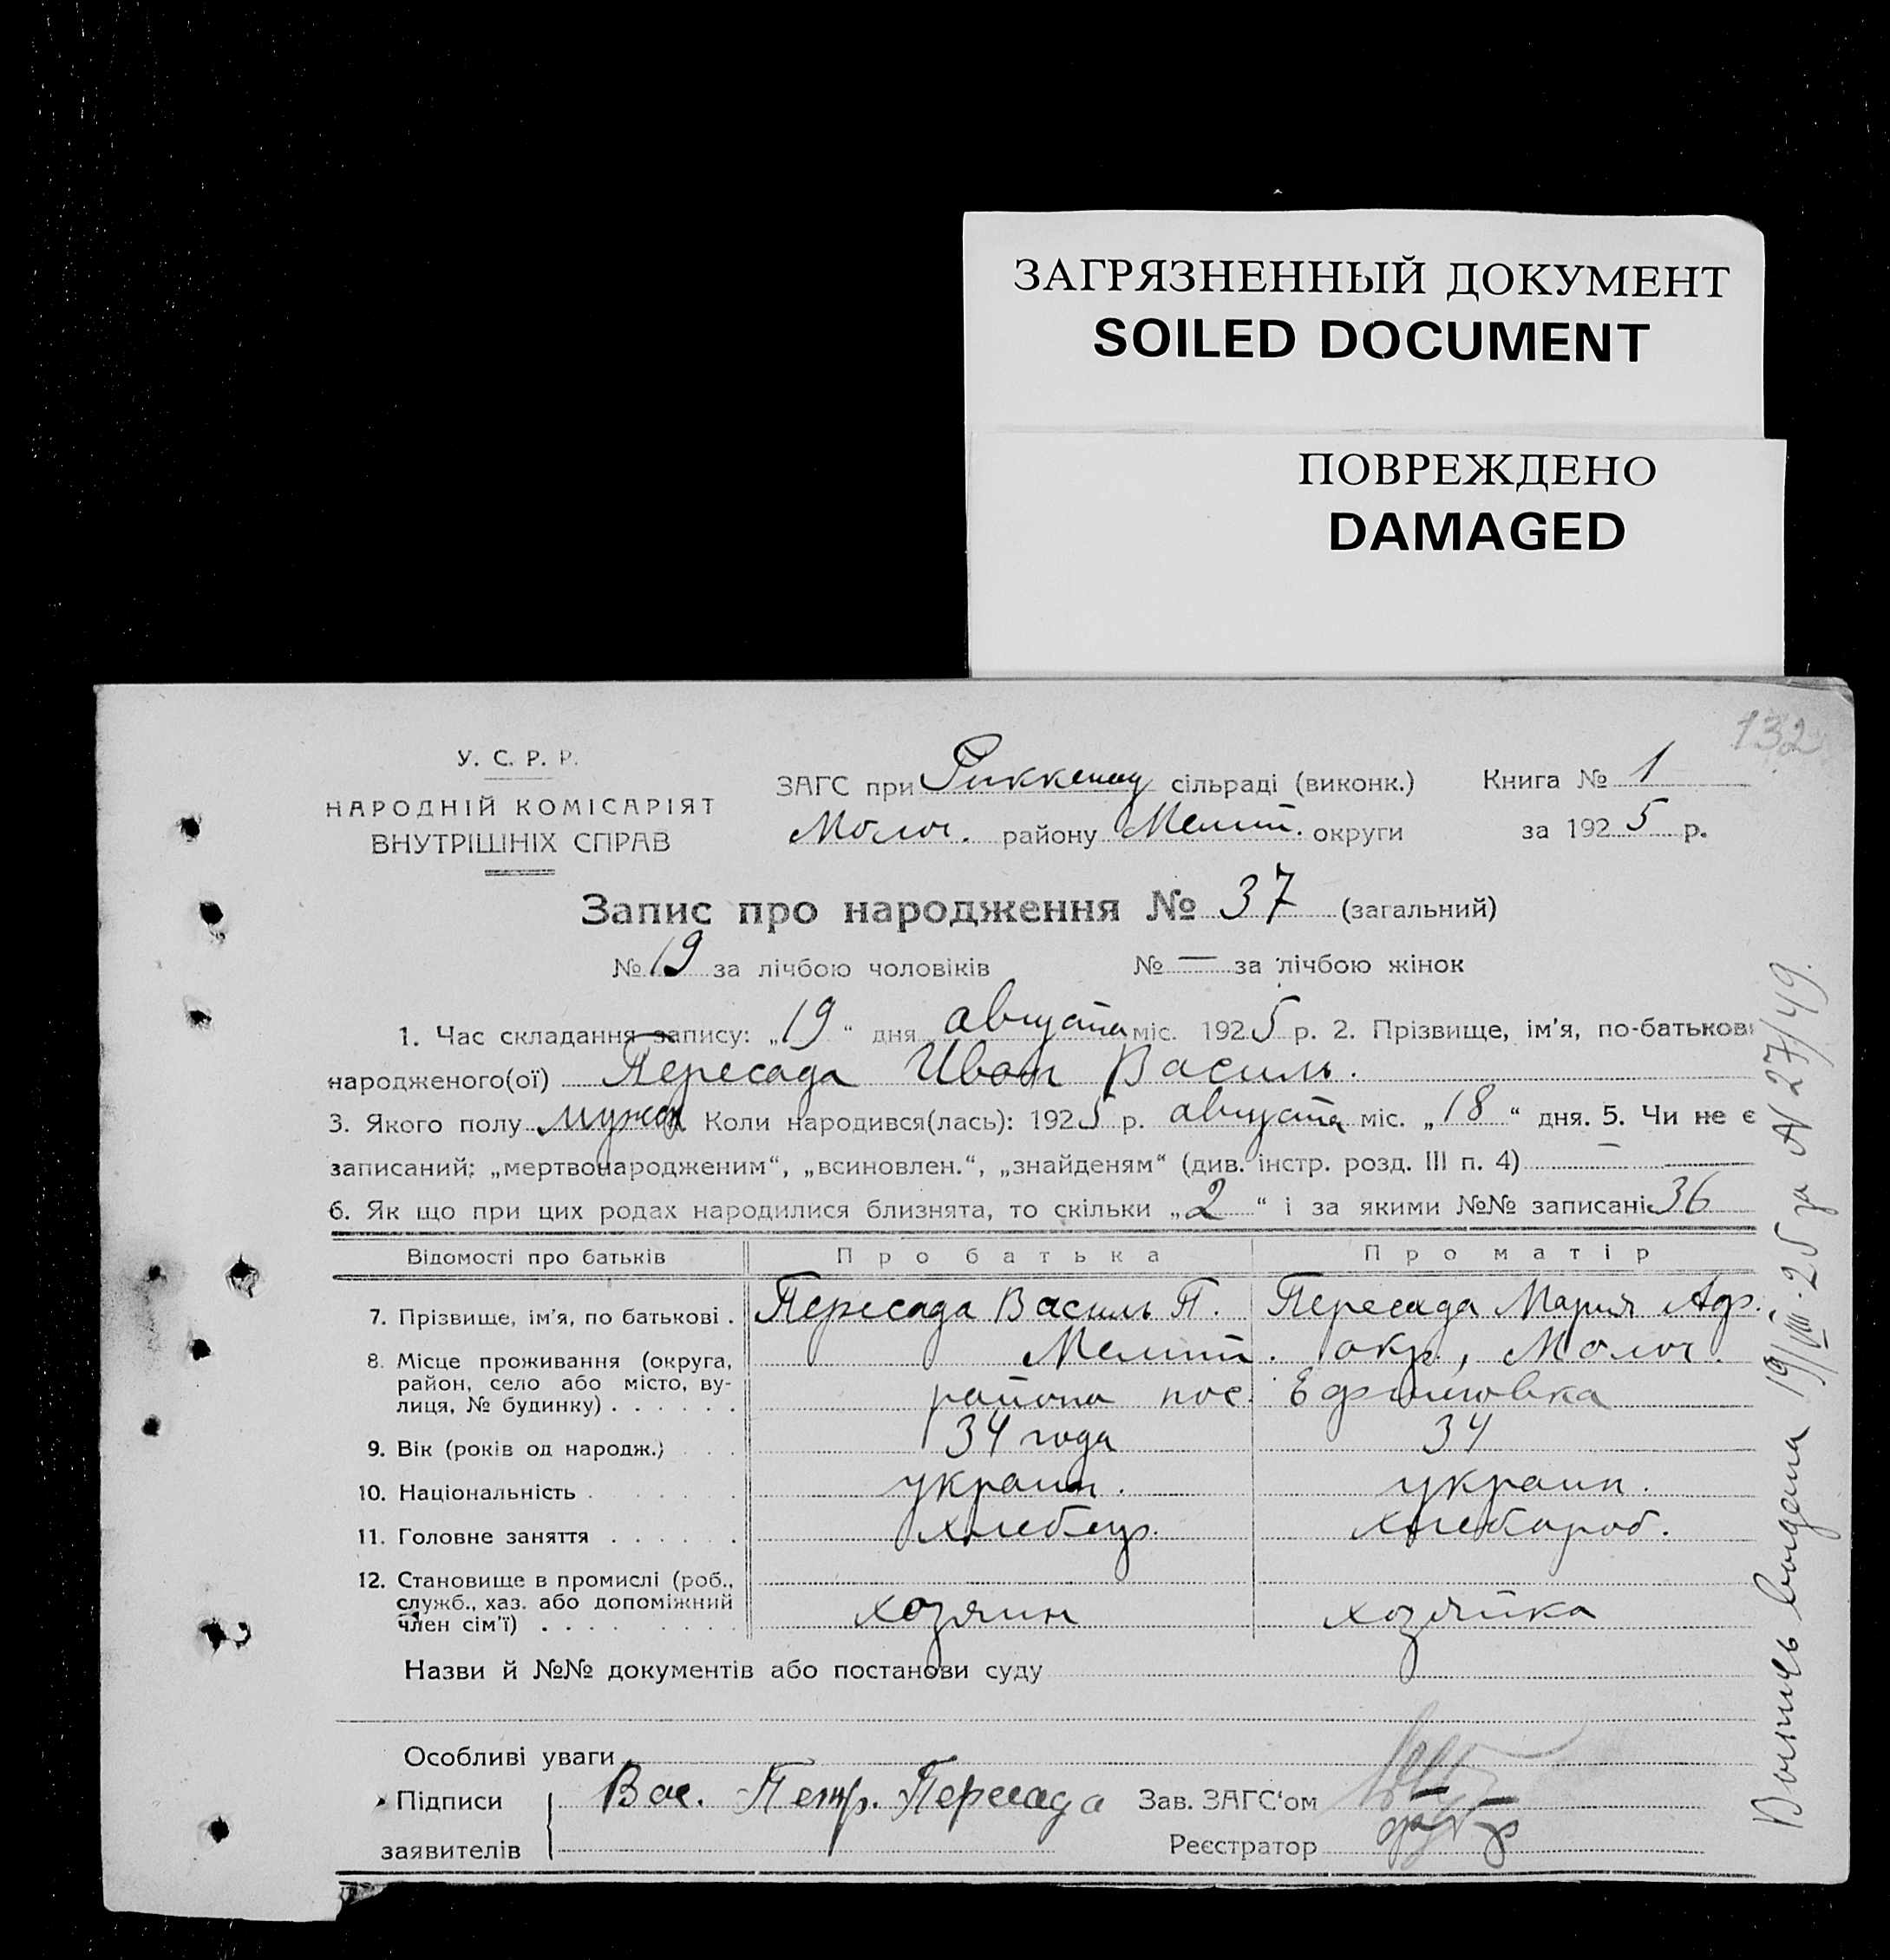 ЗАГРЯЗНЕННЫЙ ДОКУМЕНТ
SOILED DOCUMENT
ПОВРЕЖДЕНО
DAMAGED
132
У. С. Р. Р.
НАРОДНІЙ КОМІСАРІЯТ
ВНУТРІШНІХ СПРАВ
ЗАГС при Риккенау сільраді (виконк.) Книга № 1
Молоч. району Мелит. округи за 1925 р.
Запис про народження № 37 (загальний)
№ 19 за лічбою чоловіків № — за лічбою жінок
1. Час складання запису: „19“ дня августа міс. 1925 р. 2. Прізвище, ім'я, по-батькові
народженого(ої) Пересада Иван Василь.
3. Якого полу мужск Коли народився(лась): 1925 р. августа міс. „18“ дня. 5. Чи не є
записаний: „мертвонародженим“, „всиновлен.“, „знайденям“ (див. інстр. розд. III п. 4) —
6. Як що при цих родах народилися близнята, то скільки „2“ і за якими №№ записані 36
Відомості про батьків Про батька Про матір
7. Прізвище, ім'я, по батькові . Пересада Василь П. Пересада Мария Аф.
8. Місце проживання (округа, Мелит. окр., Молоч.
район, село або місто, ву-
лиця, № будинку) . . . . . . района пос.
9. Вік (років од народж.) . . . 34 года 34
10. Національність . . . . . . украин. украин.
11. Головне заняття . . . . . . хлебор. хлебороб.
12. Становище в промислі (роб.,
служб., хаз. або допоміжний
член сім'ї) . . . . . . . . . хозяин хозяйка
Назви й №№ документів або постанови суду
Особливі уваги
Підписи Вас. Петр. Пересада Зав. ЗАГС'ом
заявителів Реєстратор
Выпись выдана 19/VIII-25 за № 27/49.